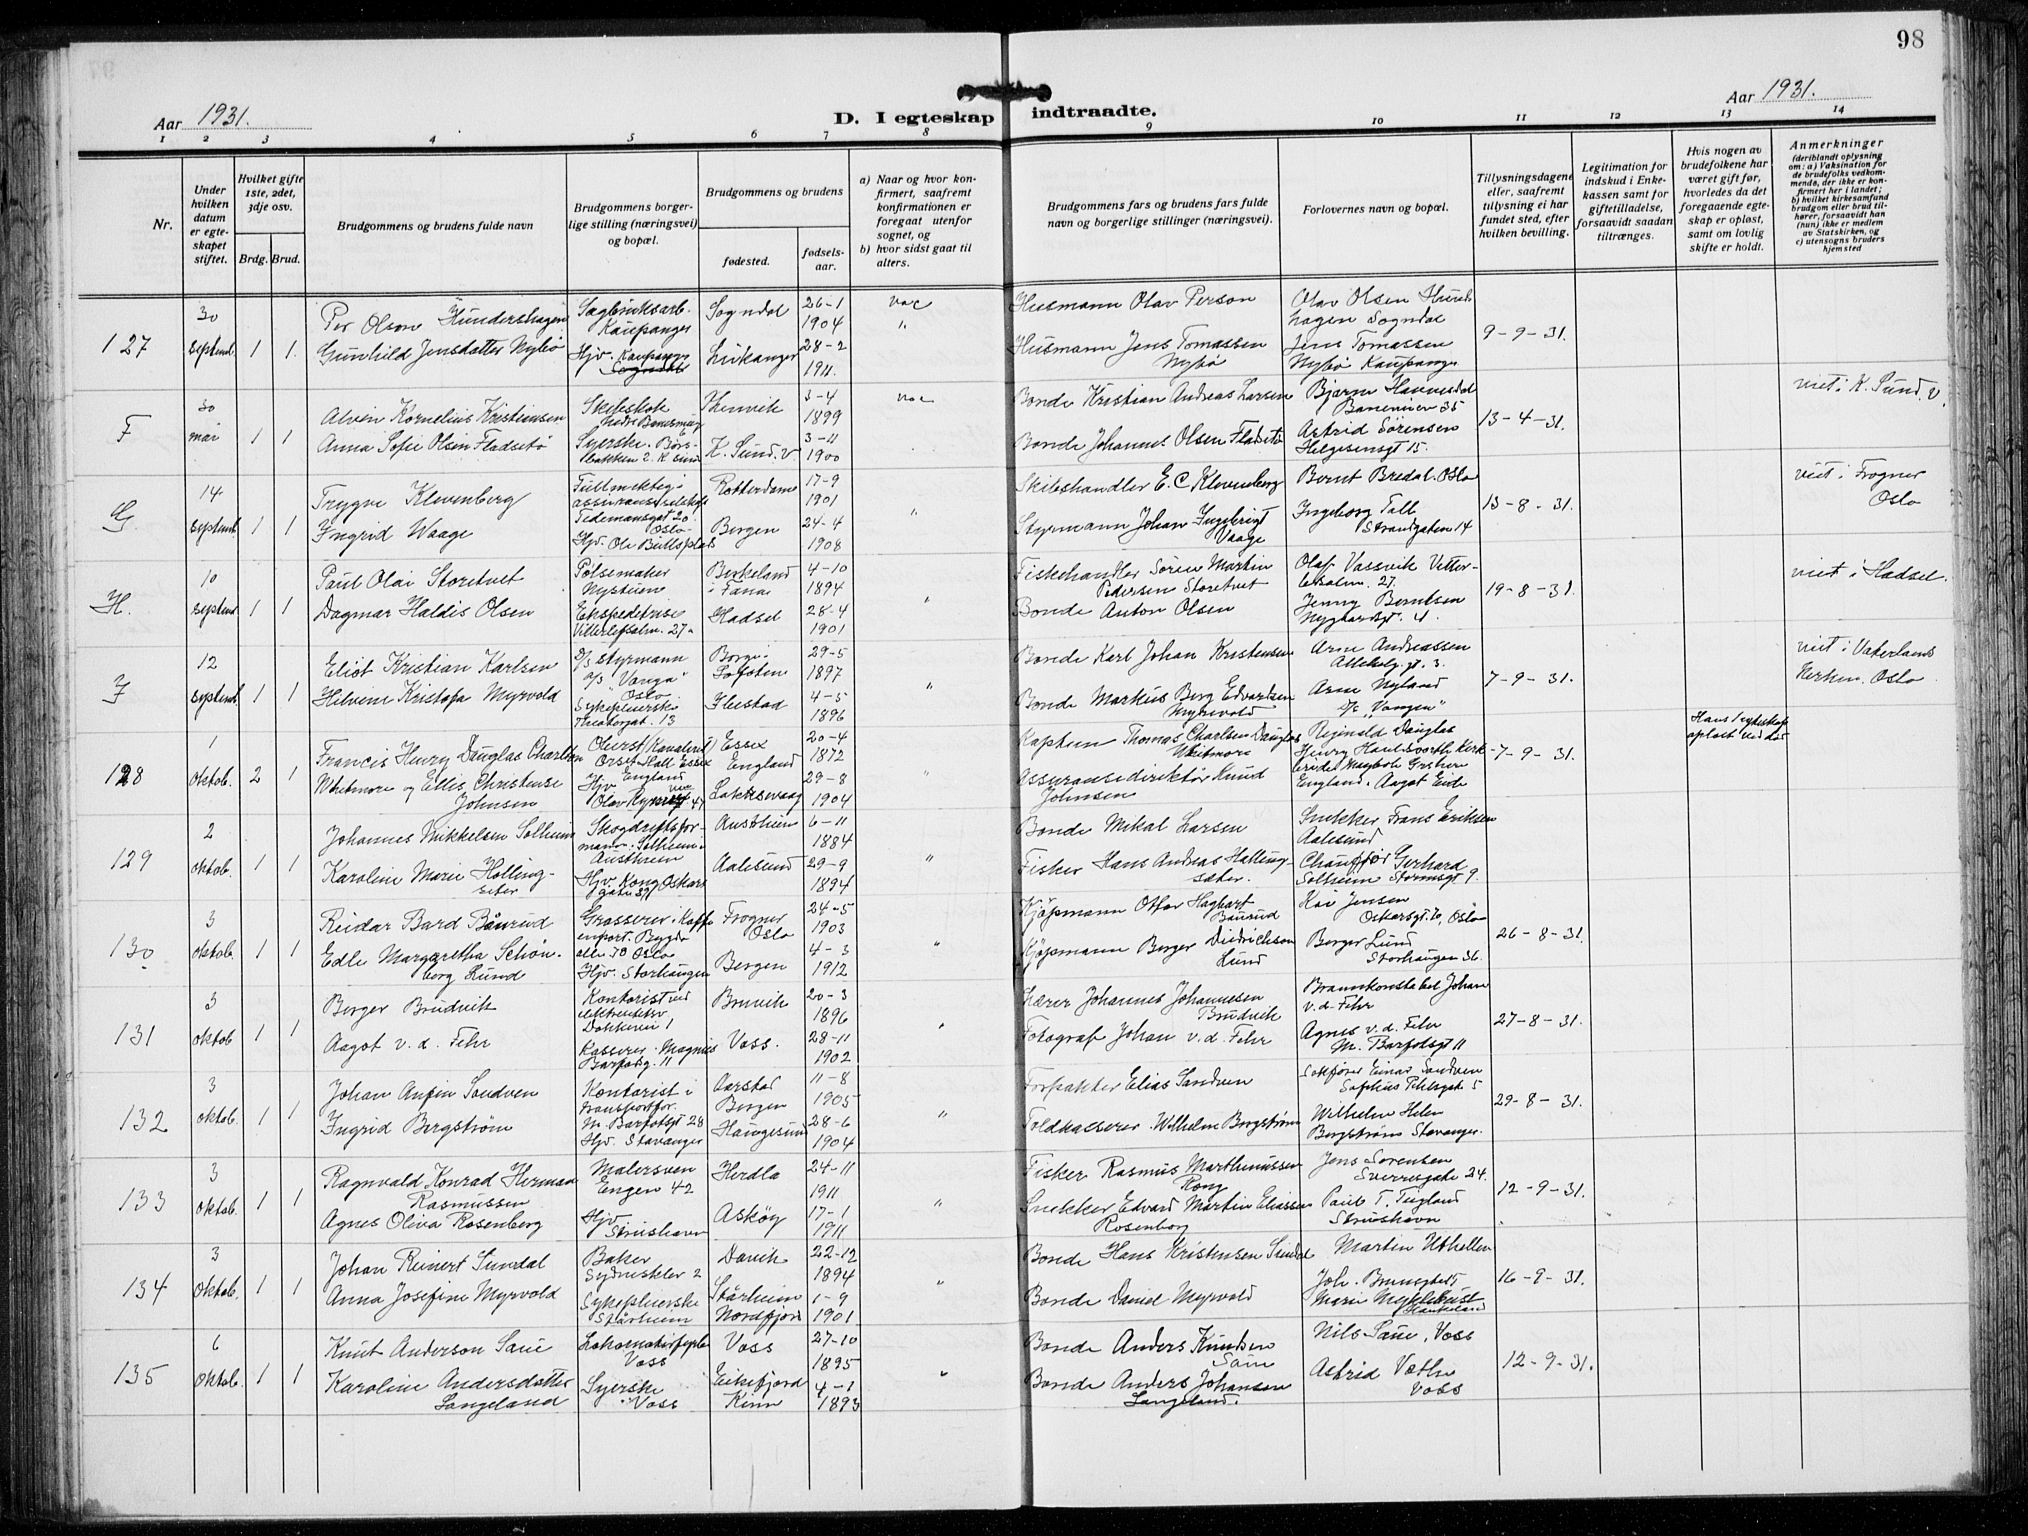 98
Aar 1931.
D. I egteskap indtraadte.
Aar 1931.
1 2 3 4 5 6 7 8 9 10 11 12 13 14
Nr.
Under hvilken datum er egte-skapet stiftet.
Hvilket gifte 1ste, 2det, 3dje osv.
Brdg. Brud.
Brudgommens og brudens fulde navn
Brudgommens borger-lige stilling (næringsvei) og bopæl.
Brudgommens og brudens
fødested.
fødsels-aar.
a) Naar og hvor kon-firmert, saafremt konfirmationen er foregaat utenfor sognet, og
b) hvor sidst gaat til alters.
Brudgommens fars og brudens fars fulde navn og borgerlige stillinger (næringsvei).
Forlovernes navn og bopæl.
Tillysningsdagene eller, saafremt tillysning ei har fundet sted, efter hvilken bevilling.
Legitimation for indskud i Enke-kassen samt for giftetilladelse, forsaavidt saadan tiltrænges.
Hvis nogen av brudefolkene har været gift før, hvorledes da det foregaaende egte-skap er opløst, samt om lovlig skifte er holdt.
Anmerkninger
(deriblandt oplysning om: a) Vaksination for de brudefolks vedkom-mende, der ikke er kon-firmert her i landet; b) hvilket kirkesamfund brudgom eller brud til-hører, forsaavidt han (hun) ikke er medlem av Statskirken, og c) utensogns bruders hjemsted
127
30 septemb. 1 1.
Per Olsen Hundershagen
Gunhild Jensdatter Nybø
Sagbruksarb. Kaupanger
Hjv. Kaupanger
Sogndal
26-1 1904
28-2 1911.
vac
Husmann Olav Person
Husmann Jens Tomassen Nybø
Olav Olsen
hagen Sogndal
Jens Tomassen
Nybø Kaupanger
9-9-31.
F
30 mai 1 1
Alven Kornelius Kristiansen
Anna Sofie Olsen Fladsetø
Syerske. Børs-bakken 2. K. Sund
K. Sund. V.
3-4 1899
3-11 1900
vac
Bonde Kristian Andreas Larsen
Bonde Johannes Olsen Fladsetø
Bjarne
Astrid Sørensen
Helgesensgt 15.
13-4-31.
viet i K. Sund. V.
G.
14 septemb. 1 1
Trygve Klevenberg
Ingrid Waage
Fuldmektig i assuranseselskap
Tidemansgt 20 Oslo
Hjv. Ole Bullsplads
Rotterdam
Bergen
17-9 1901
24-4 1908
"
Skibshandler E. C. Klevenberg
Styrmann Johan Ingebrigt Vaage
Bernt Bredal. Oslo
Ingeborg Tall
Strandgaten 14
13-8-31.
viet i Frogner Oslo
H.
10 septemb. 1 1
Paul Olai Storetvet
Dagmar Haldis Olsen
Pølsemaker
Ekspeditrise
27
Birkeland i Fana
Hadsel
4-10 1894
28-4 1901
"
Fiskehandler Søren Martin Pedersen Storetvet
Bonde Anton Olsen
Olaf Vassvik
27.
Jenny Berntsen
Nygaardsgt. 4.
19-8-31.
viet i Hadsel.
I
12 septemb 1 1
Eliot Kristian Karlsen
Helvine Kristofa Myrvold
Styrmann
Oslo
Sykepleierske
Teatergat. 13
Borge i Lofoten
29-5 1897
4-5 1896
"
Bonde Karl Johan Kristensen
Bonde Markus Berg Edvardsen Myrvold
Arne Andreassen
3.
Arne Nyland
"Vangen"
7-9-31.
viet i Vaterlands Kirken. Oslo
128
1 oktob. 2 1
Francis Henry Douglas Charlton
Whitmore og Ellis Christense
Johnsen
Oberst (Kavaleriet)
Orset Hall Essex England
Hjv
47
Essex England
Laksevaag
20-4 1872
29-8 1904
"
Kaptein Thomas Charlsen Douglas Whitmore
Assuransedirektør Knud Johnsen
Reginald Douglas
England. Aagot Eide
7-9-31.
Hans 1 egteskap opløst ved død
129
2 oktob. 1 1
Johannes Mikkelsen Solheim
Karoline Marie Holling-seter
Skogdriftsfor-mann. Solheim. Austrheim
Hjv. Kong Oskars gate 39
Austrheim
Aalesund
6-11 1884
29-9 1894
"
Bonde Mikal Larsen
Fisker Hans Andreas Halling-sæter.
Snekker Frans Eriksen
Aalesund
Chauffør Gerhard
Solheim Stormsgt 9.
130
3 oktob. 1 1
Reidar Bard Baurud
Edle Margaretha Schøn-berg Lund
Grosserer i Kaffe
Bygdø alle 70 Oslo
Hjv. Storhaugen
Frogner Oslo
Bergen
24-5 1903
4-3 1912
"
Kjøpmann Otto Hagbart Baurud
Kjøpmann Berger Diedrichson Lund
Kai Jensen
Oskarsgt. 70, Oslo
Berger Lund
Storhaugen 36.
26-8-31.
131
3 oktob 1 1
Berger Brudvik
Aagot v. d. Fehr
Kontorist ved
Dokkeveien 1
Kasserer. Magnus Barfodsg. 11
Bruvik
Voss.
20-3 1896
28-11 1902
"
Lærer Johannes Johannesen Brudvik
Fotograf Johan v. d. Fehr
Brannkonstabel Johan v. d. Fehr
Agnes v. d. Fehr
M. Barfotsgt 11
27-8-31.
132
3 oktob. 1 1
Johan Anfin Sandven
Ingrid Bergstrøm
Kontorist i transportfor.
M. Barfotsgt 28
Hjv. Stavanger
Aarstad Bergen
Haugesund
11-8 1905
28-6 1904
"
Forpakter Elias Sandven
Toldkasserer. Wilhelm Bergstrøm
Sakfører Einar Sandven
5
Wilhelm Helen
Bergstrøm Stavanger.
29-8-31.
133
3 oktob. 1 1
Ragnvald Konrad Herman
Rasmussen
Agnes Oliva Rosenberg
Malersven
Engen 42
Hjv. Strushavn
Herdla
Askøy
24-11 1911
17-1 1911
"
Fisker Rasmus Marthinussen Rong
Snekker Edvard Martin Eliassen Rosenberg
Jens Sørensen
Sverresgate 24.
Paul T. Tugland
Strushavn
12-9-31.
134
3 oktob. 1 1
Johan Reinert Sundal
Anna Josefine Myrvold
Baker
Sydneskler 2
Sykepleierske
Stårheim
Davik
Stårheim Nordfjord
22-12 1894
1-9 1901
"
Bonde Hans Kristensen Sundal
Bonde Daniel Myrvold
Martin
Joh.
Marie Myklebust
16-9-31.
135
6 oktob. 1 1
Knut Anderson Saue
Karoline Andersdatter
Langeland
Voss
Syerske
Voss
Voss
Eikefjord Kinn
27-10 1895
4-1 1893
"
Bonde Anders Knutsen Saue
Bonde Anders Johansen Langeland.
Nils Saue, Voss
Astrid Væthe
Voss
12-9-31.